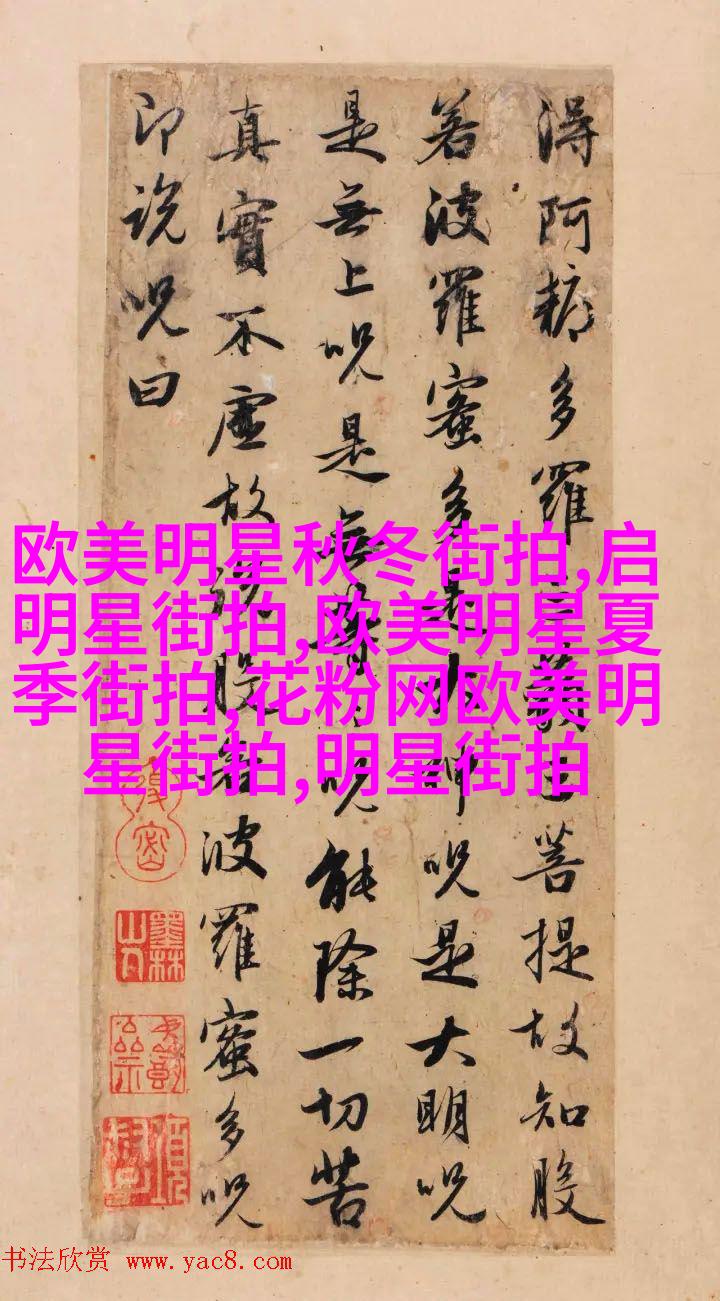 得阿耨多羅三藐三菩提故知般
若波羅蜜多是大神呪是大明呪
是無上呪是無等等呪能除一切苦
真實不虛故說般若波羅蜜多呪
即説呪曰
欧美明星秋冬街拍,启
明星街拍,欧美明星夏
季街拍,花粉网欧美明
星街拍,明星街拍
墨林山人
书法欣赏 www.yac8.com